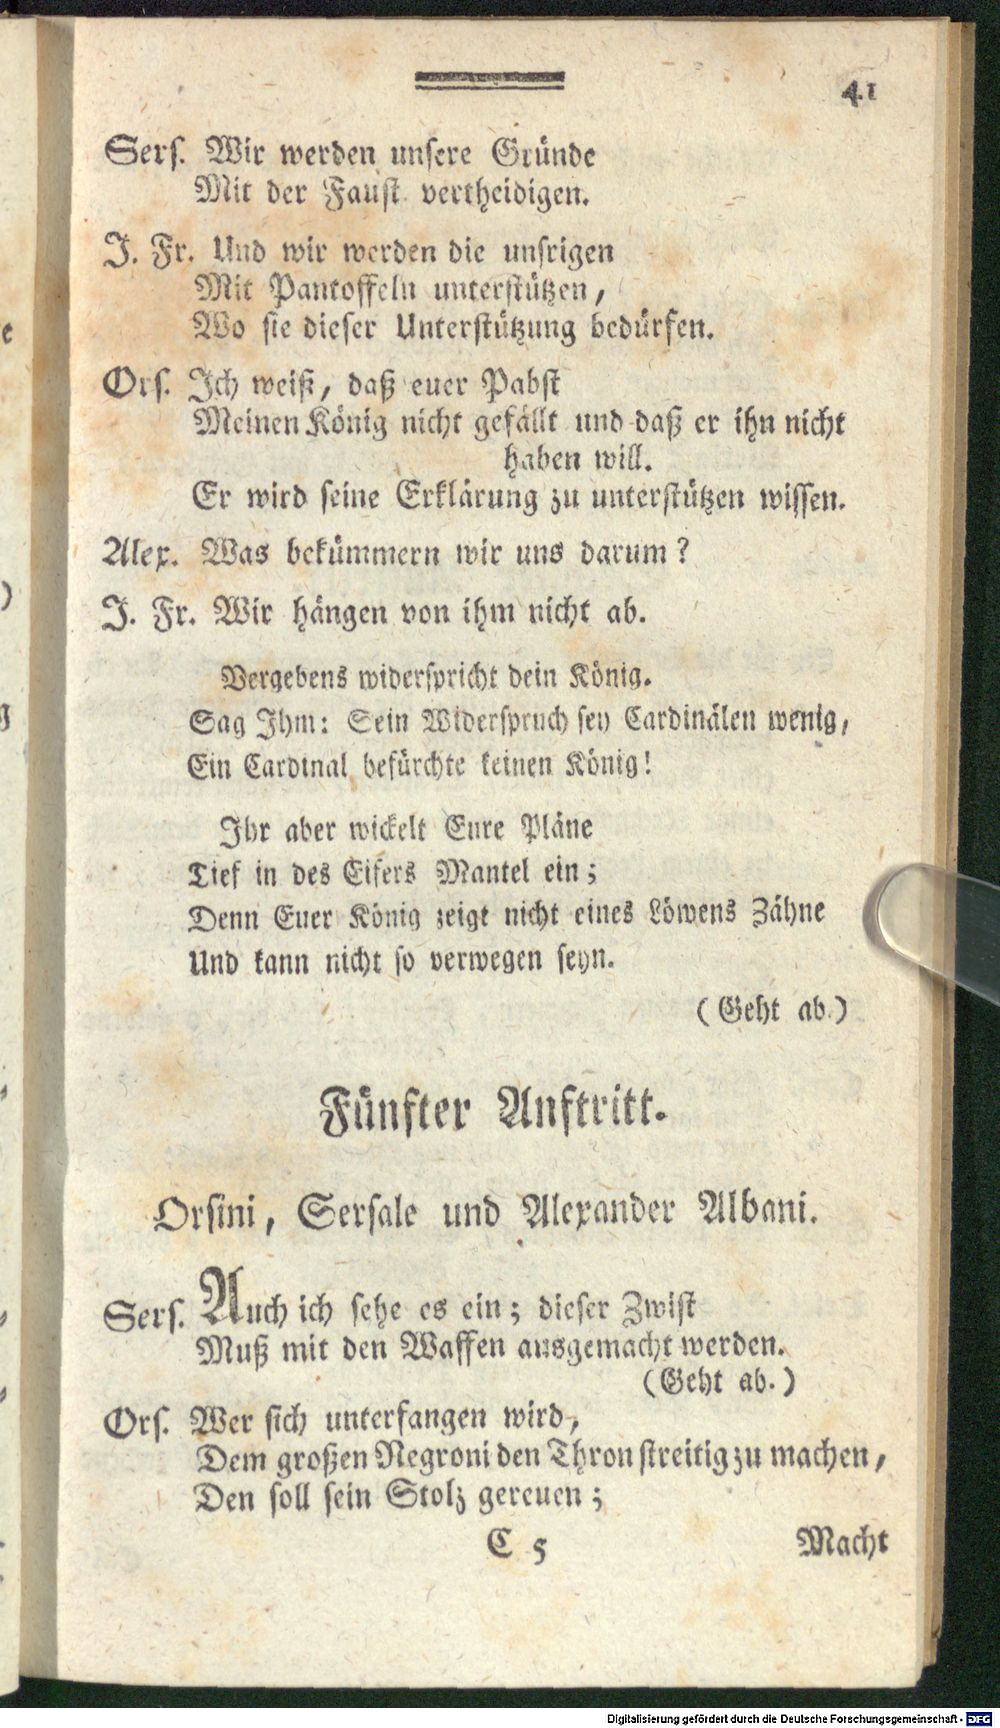 41
Sers. Wir werden unsere Gründe
Mit der Faust vertheidigen.
J. Fr. Und wir werden die unsrigen
Mit Pantoffeln unterstützen,
Wo sie dieser Unterstützung bedürfen.
Ors. Ich weiß, daß euer Pabst
Meinen König nicht gefällt und daß er ihn nicht
haben will.
Er wird seine Erklärung zu unterstützen wissen.
Alex. Was bekümmern wir uns darum?
J. Fr. Wir hängen von ihm nicht ab.
Vergebens widerspricht dein König.
Sag Ihm: Sein Widerspruch sey Cardinälen wenig,
Ein Cardinal befürchte keinen König!
Ihr aber wickelt Eure Pläne
Tief in des Eifers Mantel ein;
Denn Euer König zeigt nicht eines Löwens Zähne
Und kann nicht so verwegen seyn.
(Geht ab.)
Fünfter Auftritt.
Orsini, Sersale und Alexander Albani.
Sers. Auch ich sehe es ein; dieser Zwist
Muß mit den Waffen ausgemacht werden.
(Geht ab.)
Ors. Wer sich unterfangen wird,
Dem großen Negroni den Thron streitig zu machen,
Den soll sein Stolz gereuen;
C 5 Macht
Digitalisierung gefördert durch die Deutsche Forschungsgemeinschaft - DFG